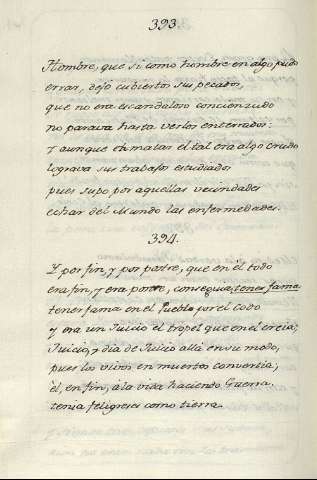 393
Hombre, que si como hombre en algo pudo
errar, dejo cubiertos sus pecados,
que no era escandaloso concienzudo
no parava hasta verlos enterrados:
Y aunque en matar el tal era algo crudo
lograva sus trabajos estudiados
pues supo por aquellas vecindades
echar del Mundo las enfermedades.
394.
Y por fin, y por postre, que en el todo
era fin, y era postre, conseguia, tener fama
tener fama en el Pueblo por el codo
y era un Juicio el tropel que en el creia;
Juicio, y dia de Juicio alla en su modo,
pues los vivos en muertos convertia;
el, en fin, a la vida haciendo Guerra.
tenia feligreses como tierra.